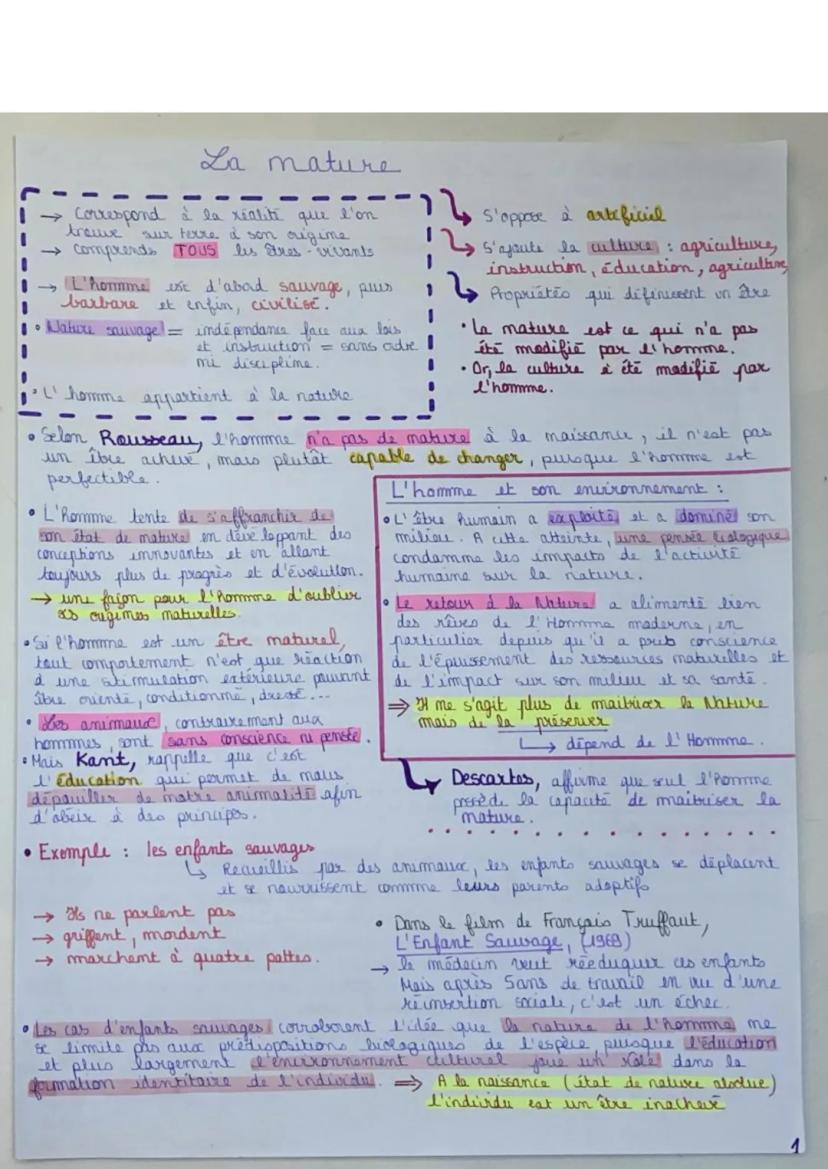 La nature
→ Correspond à la réalité que l'on
trouve sur terre à son origine
→ Comprends TOUS les êtres-vivants
→ L'homme est d'abord sauvage, puis
barbare et enfin, civilisé.
• Nature sauvage = indépendance face aux lois
et instruction = sans ordre
ni discipline.
• L'homme appartient à la nature
S'oppose à artificiel
S'ajoute la culture : agriculture,
instruction, éducation, agriculture,
Propriétés qui définissent un être
• La nature est ce qui n'a pas
été modifié par l'homme.
• Or, la culture a été modifié par
l'homme.
• Selon Rousseau, l'homme n'a pas de nature à la naissance, il n'est pas
un être achevé, mais plutôt capable de changer, puisque l'homme est
perfectible.
• L'homme tente de s'affranchir de
son état de nature en développant des
conceptions innovantes et en allant
toujours plus de progrès et d'évolution.
→ une façon pour l'homme d'oublier
ses origines naturelles.
• Si l'homme est un être naturel,
tout comportement n'est que réaction
à une stimulation extérieure pouvant
être orienté, conditionné, dressé...
• Les animaux, contrairement aux
hommes, sont sans conscience ni pensée.
• Mais Kant, rappelle que c'est
l'éducation qui permet de nous
dépouiller de notre animalité afin
d'obéir à des principes.
L'homme et son environnement :
• L'être humain a exploité et a dominé son
milieu. A cette atteinte, une pensée écologique
condamne les impacts de l'activité
humaine sur la nature.
• Le retour à la Nature a alimenté bien
des rêves de l'Homme moderne, en
particulier depuis qu'il a pris conscience
de l'épuisement des ressources naturelles et
de l'impact sur son milieu et sa santé.
⇒ Il ne s'agit plus de maitriser la Nature
mais de la préserver
↳ dépend de l'Homme.
Descartes, affirme que seul l'homme
possède la capacité de maitriser la
nature.
• Exemple : les enfants sauvages
↳ Recueillis par des animaux, les enfants sauvages se déplacent
et se nourrissent comme leurs parents adoptifs
→ Ils ne parlent pas
→ griffent, mordent
→ marchent à quatre pattes.
• Dans le film de François Truffaut,
L'Enfant Sauvage, (1969)
→ le médecin veut rééduquer ces enfants
Mais après 5ans de travail en vue d'une
réinsertion sociale, c'est un échec.
• Les cas d'enfants sauvages corroborent l'idée que la nature de l'homme ne
se limite pas aux prédispositions biologiques de l'espèce puisque l'éducation
et plus largement l'environnement culturel joue un rôle dans la
formation identitaire de l'individu. ⇒ A la naissance (état de nature absolue)
l'individu est un être inachevé
1